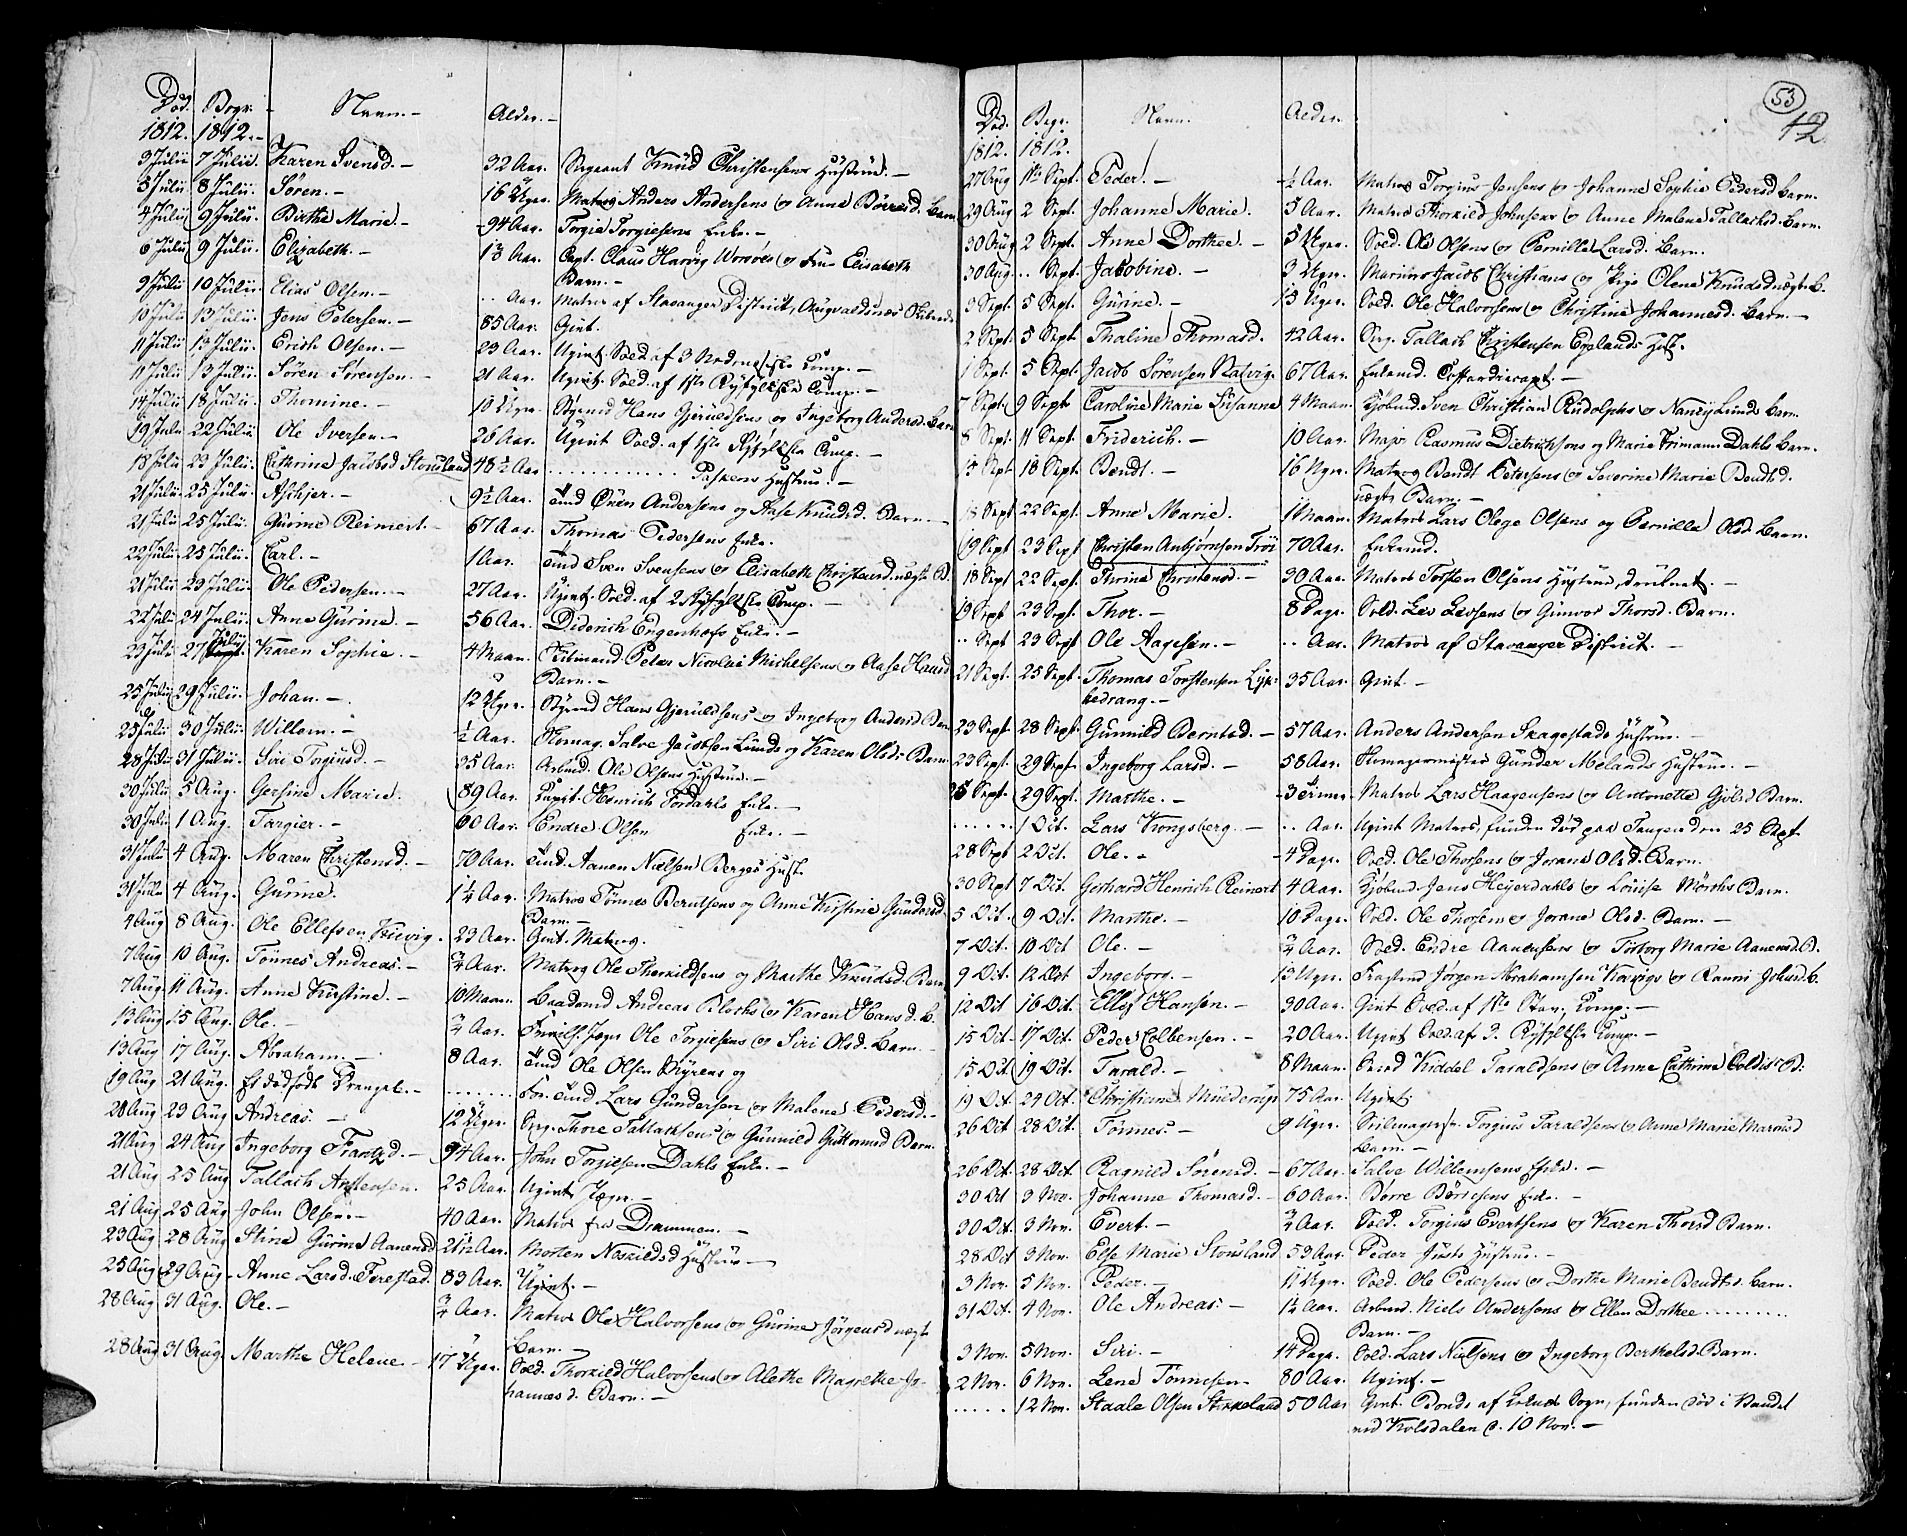 Död. Begr. Navn. Alder.
1812. 1812.
3 Julii 7 Julii. Karen Svensd. 32 Aar. Sergeant Knud Christensens Hustrue.
3 Julii 8 Julii. Søren. 16 Uger. Matros Anders Andersens og Anne Barn
4 Julii 9 Julii. Birthe Marie. 94 Aar. Torgie Torgiesens Enke.
6 Julii 9 Julii. Elizabeth. Aar. Capt. Claus Harvig Worsöes og Fru Elisabeth
Barn.
9 Julii 10 Julii. Elias Olsen. .. Aar. Matros af Stavanger District, Augvaldsnæs Skibrede
10 Julii 13 Julii. Jens Petersen. 85 Aar. Gint.
11 Julii 13 Julii. Erich Olsen. 23 Aar. Ugivt Sold. af 3 Comp.
11 Julii 13 Julii. Søren Sørensen. 21 Aar. Ugivt. Sold. af 1ste Ryfylkske Comp.
14 Julii 18 Julii. Thomine. 10 Uger. Styrmd Hans Gjeruldsens og Ingeborg Andersd. Barn
19 Julii 22 Julii Ole Iversen. 26 Aar. Ugivt Sold. af 1ste Ryfylkske Comp.
18 Julii 23 Julii. Cathrine Jacobsd Stousland 48½ Aar ............ Paskens Hustrue.
21 Julii 25 Julii. Aschjer. 9½ Aar. Andersens og Aase Knudsd. Barn
21 Julii 25 Julii. Gurine Reinert. 67 Aar. Thomas Pedersens Enke.
22 Julii 25 Julii. Carl. 1 Aar. Sven Svensens og Elisabeth Christensd. uægte B.
21 Julii 29 Julii. Ole Pedersen. 27 Aar. Ugivt. Sold. af 2 Ryfylkske Comp.
22 Julii 24 Julii. Anne Gurine. 56 Aar. Diderich Engenhofs Enke.
23 Julii 27 Julii. Karen Sophie. 4 Maan. Peter Nicolai Michelsens og Aase Hansd
Barn.
25 Julii 29 Julii. Johan. 12 Uger. Styrmd Hans Gjeruldsens og Ingeborg Andersd Barn
25 Julii 30 Julii. Willem. ½ Aar. Skomag. Salve Jacobsen Lunds og Karen Olsd: Barn
28 Julii 31 Julii. Siri Torgiusd. 35 Aar. Arbmd. Ole Olsens Hustrue.
30 Julii 5 Aug. Gersine Marie. 89 Aar. Capit. Henrich Tordahls Enke.
30 Julii 1 Aug. Targier. 60 Aar. Endre Olsen Enke.
31 Julii 4 Aug. Maren Christensd. 70 Aar. Aanen Nielsen Berges Hust.
31 Julii 4 Aug. Gurine. 1¼ Aar. Matros Tönnes Berntsens og Anne Kirstine Gundersd.
Barn.
4 Aug 8 Aug. Ole Ellefsen 23 Aar. Gint. Matros.
7 Aug 10 Aug. Tönnes Andreas. ¾ Aar. Matros Ole Therkildsens og Marthe Knudsd. Barn
7 Aug. 11 Aug. Anne Kirstine. 10 Maan. Baadsmd Andreas Blochs og Karen Hansd. B.
13 Aug 15 Aug. Ole. ¾ Aar. Jæger Ole Torgiesens og Siri Olsd. Barn
13 Aug 17 Aug. Abraham. 8 Aar. Ole Olsen og
19 Aug 21 Aug. Et dødfødt Drengeb. ....... For. Lars Gundersen og Malene Pedersd.
20 Aug 23 Aug Andreas. 12 Uger. Serg. Thore Tallaksens og Gunnild Guttormsd Barn.
21 Aug 24 Aug Ingeborg Frantzd. 94 Aar. John Torgiesen Dahls Enke.
21 Aug 25 Aug Tallach Anstensen. 25 Aar. Ugivt Jæger.
21 Aug 25 Aug John Olsen. 40 Aar. Matros fra Drammen.
23 Aug 28 Aug Stine Gurine Aanensd 21½ Aar. Morten Hustrue
25 Aug 29 Aug. Anne Larsd. Forestad. 83 Aar. Ugivt.
28 Aug 31 Aug. Ole. ¾ Aar. Matros Ole Halvorsens og Gurine Jörgensd uægte
Barn.
28 Aug 31 Aug. Marthe Helene. 17 Uger. Sold. Thorkild Halvorsens og Alethe Magrethe Jo-
hannesd. Barn.
53
12
Död. Begr. Navn. Alder.
1812. 1812.
27 Aug 1ste Sept. Peder. ½ Aar. Matros Torgius Jensens og Johanne Sophie Pedersd. Barn.
29 Aug 2 Sept. Johanne Marie. 5 Aar. Matros Thorkild Johnsens og Anne Malene Tallachsd. Barn.
30 Aug 2 Sept. Anne Dorthee. 5 Uger. Sold. Ole Olsens og Pernille Larsd. Barn.
30 Aug. .. Sept. Jacobine. 3 Uger. Marinier Jacob Christians og Pige Olene Knudsd uægte B.
3 Sept. 5 Sept. Gurine. 13 Uger. Sold. Ole Halvorsens og Christine Johannesd. Barn.
2 Sept. 5 Sept. Thaline Thomasd. 42 Aar. Serg. Tallach Christensen Egelands Hust.
1 Sept. 5 Sept. Jacob Sörensen Natvig. 67 Aar. Enkemd. Coffardicapt.
7 Sept. 9 Sept Caroline Marie Susanne 4 Maan. Kjøbmd. Sven Christian Rudolphs og Nancy Lunds Barn.
8 Sept. 11 Sept. Friderich. 10 Aar. Major Rasmus Dietrichsons og Marie Frimann Dahls Barn.
14 Sept. 18 Sept. Bendt. 16 Uger. Matros Bendt Petersens og Severine Marie Bendtsd.
uægte Barn.
18 Sept 22 Sept. Anne Marie. 11 Maan. Matros Lars Olsens og Pernille Olsd. Barn.
19 Sept 23 Sept Christen Anbjörnsen Tröi 70 Aar. Enkemd.
18 Sept 22 Sept. Thrine 30 Aar. Matros Torsten Olsens Hustrue, druknet.
19 Sept 23 Sept. Thor. 8 Dage. Sold. Lev Levsens og Gunvor Thorsd. Barn.
.. Sept 23 Sept Ole Aagesen. .. Aar. Matros af Stavanger District.
21 Sept. 25 Sept. Thomas Torstensen Lyk- 35 Aar. Gint.
kedrang.
23 Sept 28 Sept. Gunnild Berntsd. 57 Aar. Anders Andersen Skagestads Hustrue.
23 Sept. 29 Sept. Ingeborg Larsd. 58 Aar. Skomagermester Gunder Melands Hustrue.
25 Sept. 29 Sept. Marthe. 3 Timer. Matros Lars Haagensens og Antonette Gjölsd. Barn.
...... 1 Oct. Lars Kongsberg. .. Aar. Ugivt Matros, funden död paa Tangen den 25 Sept.
28 Sept 2 Oct. Ole. 4 Dage. Sold. Ole Thorsens og Jorane Olsd. Barn.
30 Sept 7 Oct. Gerhard Henrich Reinert 4 Aar. Kjøbmd. Jens Heyerdahls og Louise Mörchs Barn.
5 Oct. 9 Oct. Marthe. 10 Dage. Sold. Ole Thorsens og Jorane Olsd. Barn.
7 Oct. 10 Oct Ole. ¾ Aar. Sold. Endre Aanensens og Torborg Marie Aanensd. B.
9 Oct. 12 Oct Ingeborg. 13 Uger. Jörgen Abrahamsen og Ranni B.
12 Oct 16 Oct. Ellef Hansen. 30 Aar. Gint Sold. af 1ste Stav. Comp.
15 Oct. 17 Oct. Peder Colbensen. 20 Aar. Ugivt Sold. af 2. Ryfylkske Comp.
15 Oct 19 Oct. Tarald. 8 Maan. Kiddel Taraldsens og Anne Cathrine B.
19 Oct. 24 Oct. Christiane 75 Aar. Ugivt.
26 Oct 28 Oct. Tönnes. 9 Uger. Seilmagersv. Torgius Taraldsens og Anne Marie
Barn.
26 Oct. 28 Oct. Ragnild Sörensd. 67 Aar. Salve Willemsens Enke.
30 Oct 3 Nov. Johanne Thomasd. 60 Aar. Børre Börresens Enke.
30 Oct. 3 Nov. Evert. ¾ Aar. Sold. Torgius Evertsens og Karen Thorsd Barn.
28 Oct 3 Nov. Else Marie Stousland 53 Aar. Peder Justs Hustrue.
3 Nov. 5 Nov. Peder. 11 Uger. Sold. Ole Pedersens og Dorthe Marie Bendtsd. Barn.
31 Oct. 4 Nov. Ole Andreas. 1½ Aar. Arbmd. Niels Andersens og Ellen Dorthee .........
Barn.
3 Nov. 5 Nov. Siri. 14 Dage. Sold. Lars Nielsens og Ingeborg Berthelsd. Barn.
2 Nov. 6 Nov. Lene Tönnesen. 80 Aar. Ugivt.
..... 12 Nov. Staale Olsen Stokkeland 50 Aar Gint. Bonde af Sogn, funden död i Vandet
ved Kolsdalen d. 10 Nov.